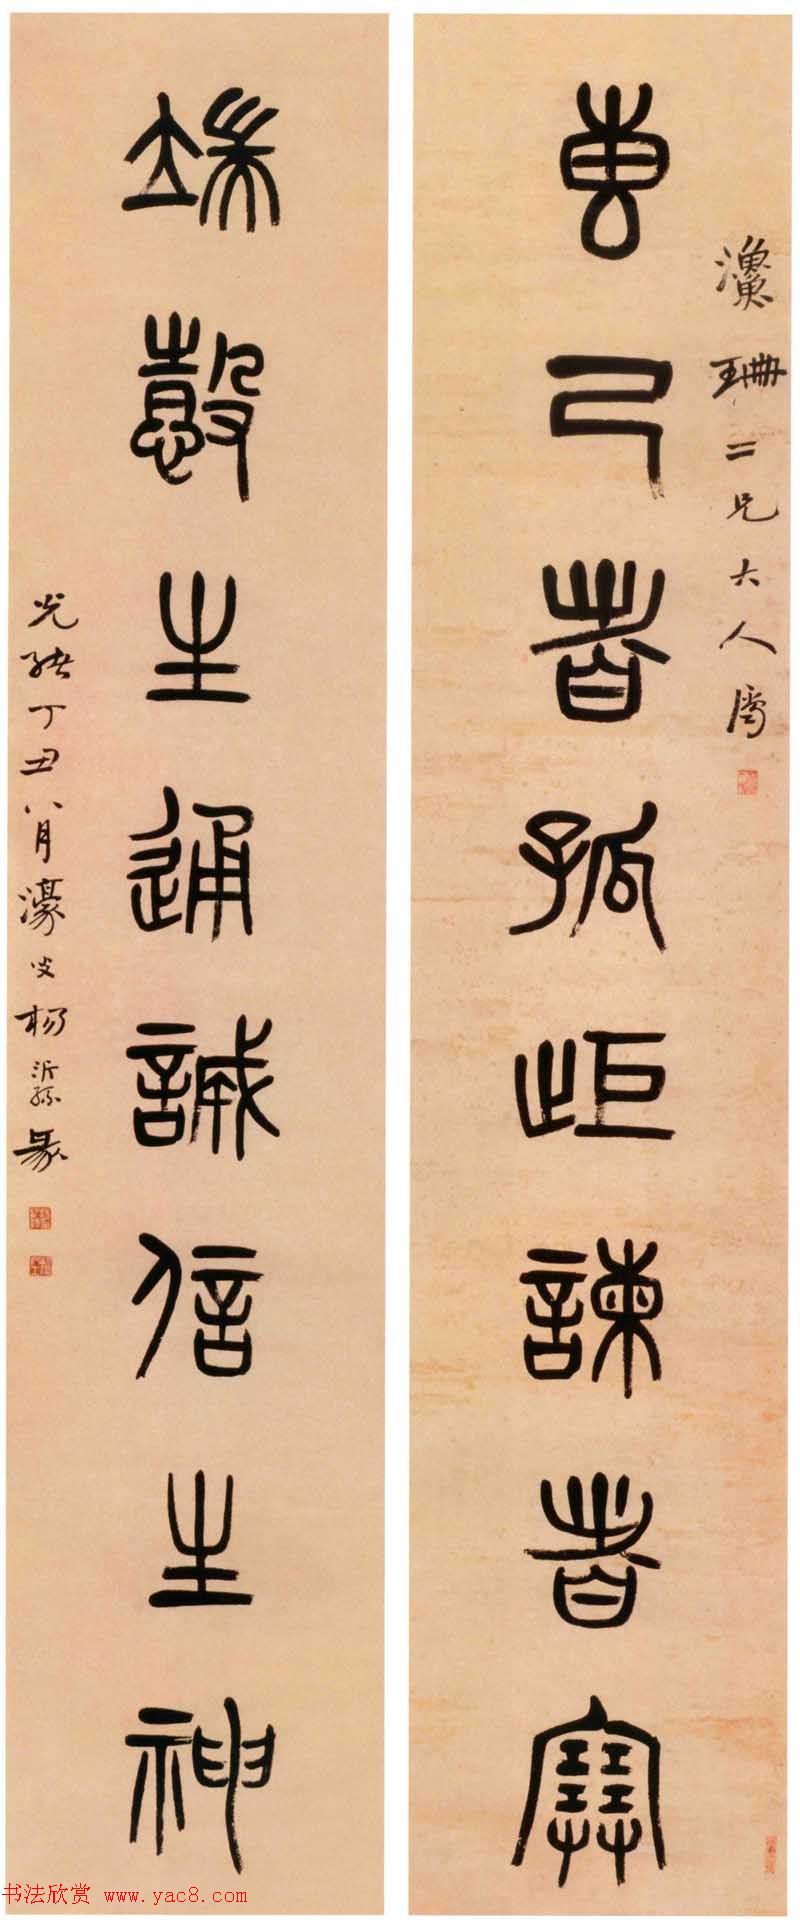 珊二兄大人屬
叀己者孤歫諫者塞
端慤生通誠信生神
光緒丁丑八月濠叟楊沂孫篆
书法欣赏 www.yac8.com